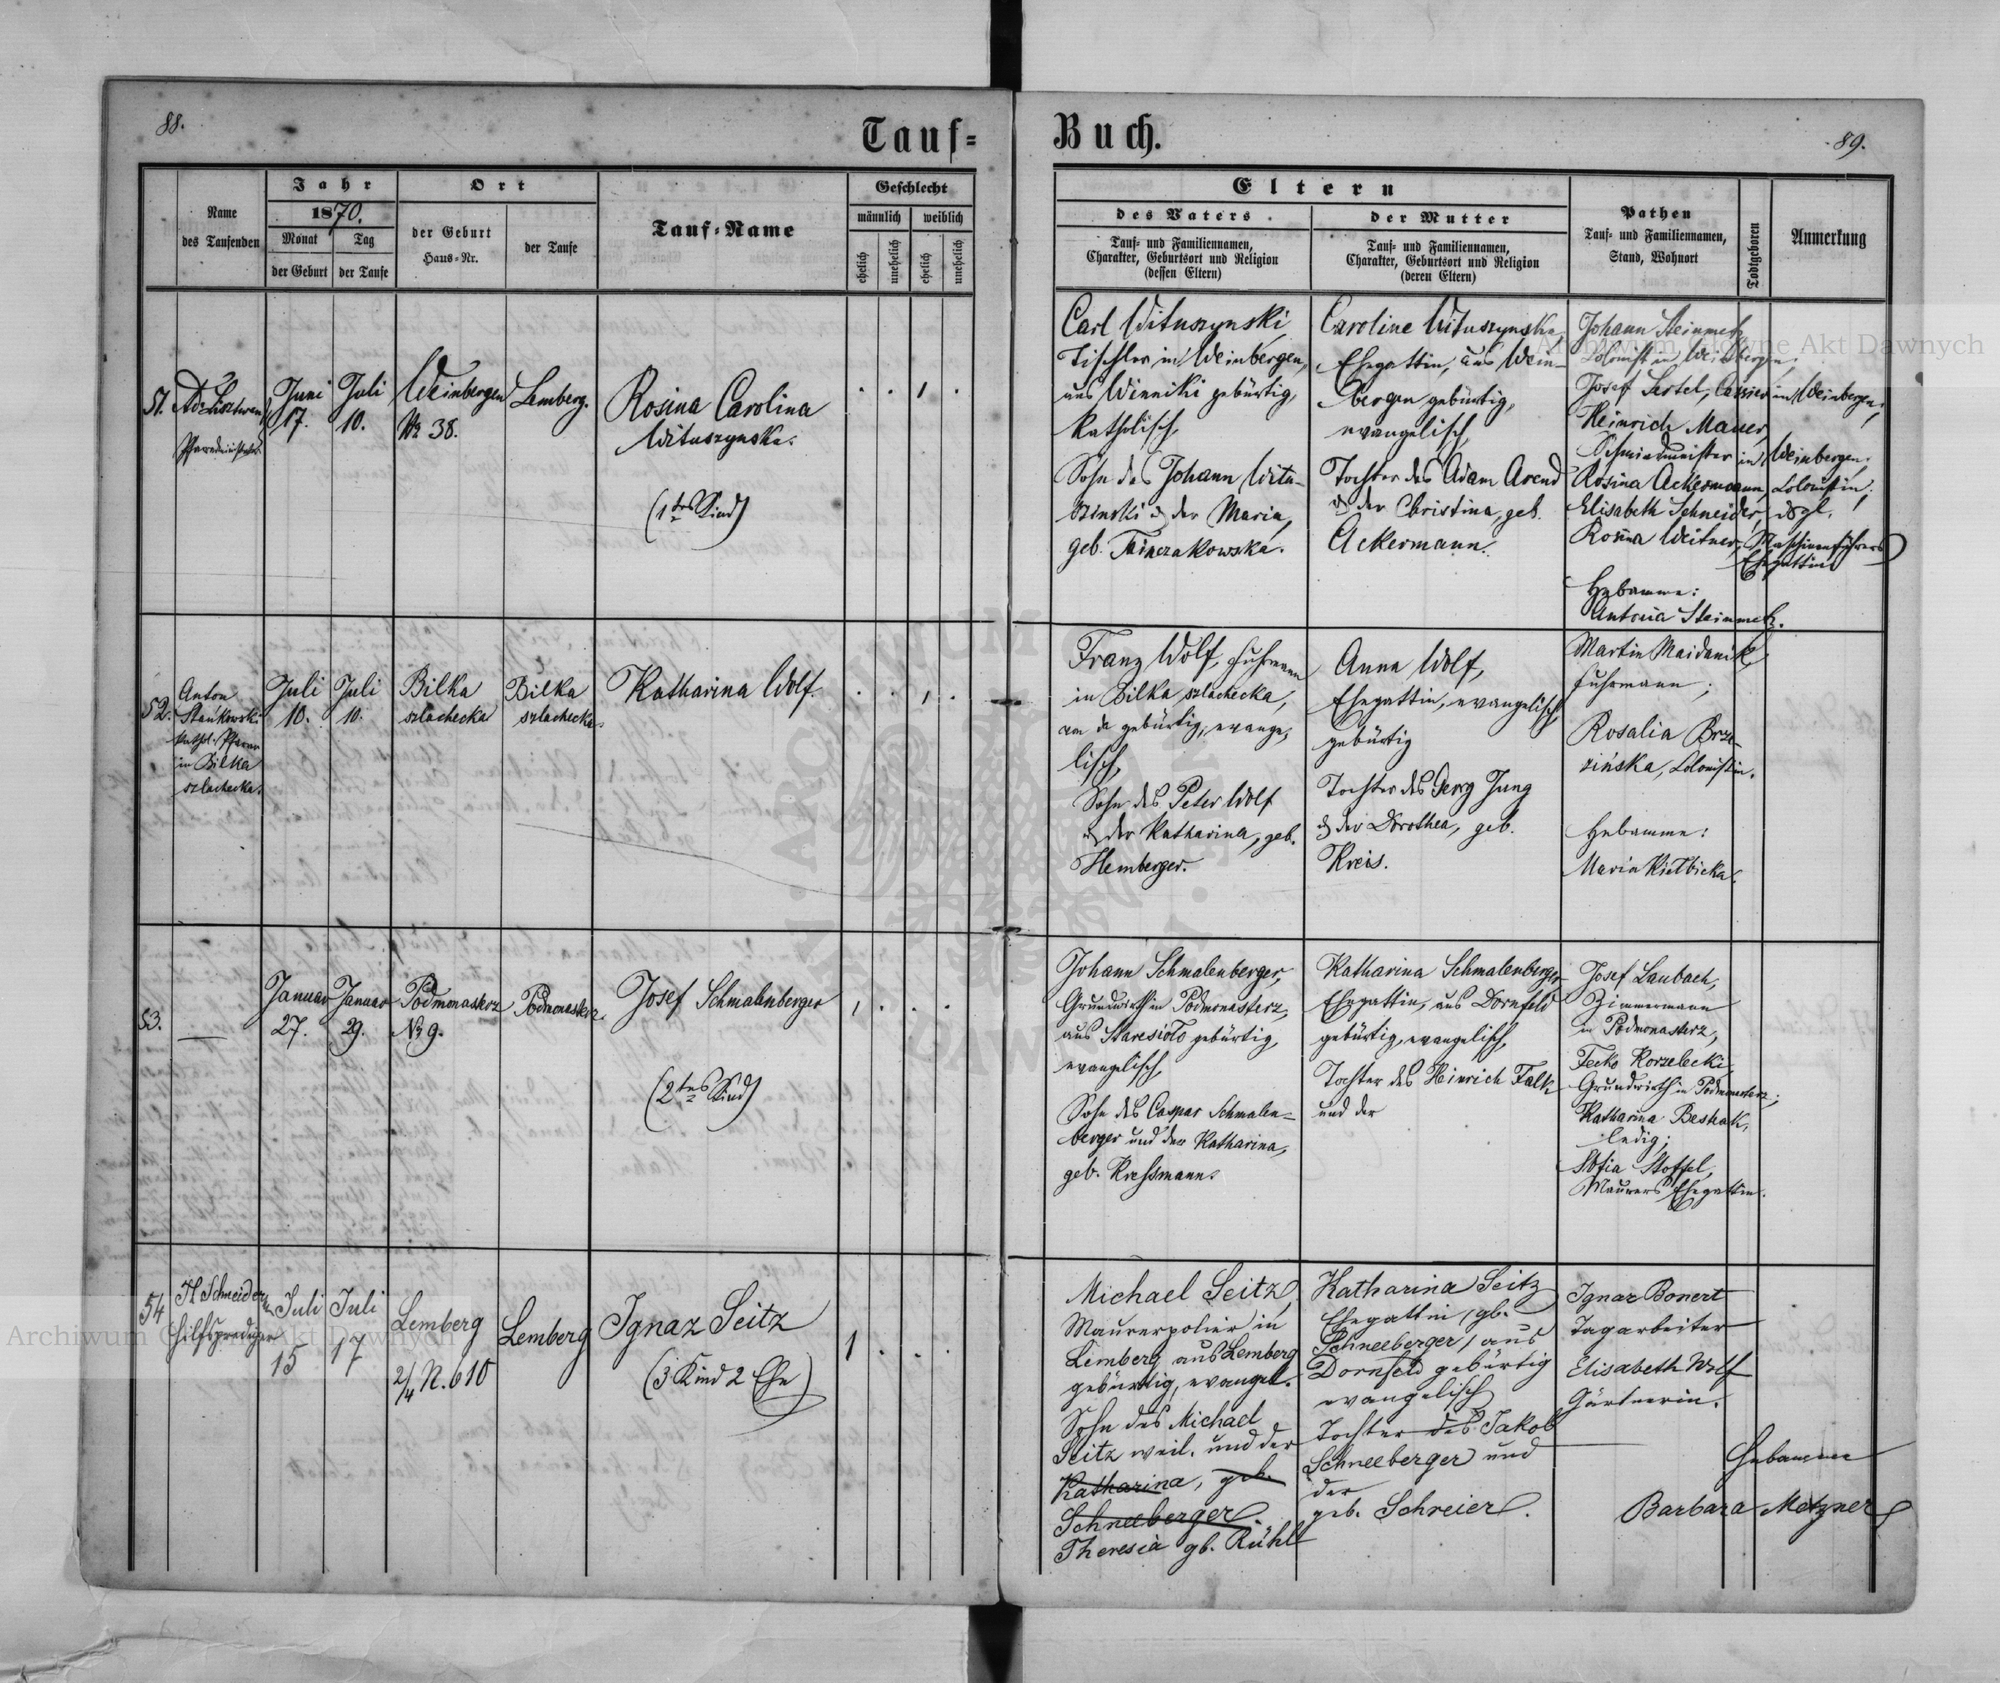 88.
Tauf-
Buch.
89.
Name
des Taufenden
Jahr
1870.
Monat
Tag
der Geburt
der Taufe
Ort
der Geburt
Haus-Nr.
der Taufe
Tauf-Name
Geschlecht
männlich
weiblich
ehelich
unehelich
ehelich
unehelich
Eltern
des Vaters
Tauf- und Familiennamen,
Charakter, Geburtsort und Religion
(dessen Eltern)
der Mutter
Tauf- und Familiennamen,
Charakter, Geburtsort und Religion
(deren Eltern)
Pathen
Tauf- und Familiennamen,
Stand, Wohnort
Todtgeboren
Anmerkung
51.
Juni
17.
Juli
10.
Weinbergen
Nr 38.
Lemberg.
Rosina Carolina
Wituszynska.
(1tes Kind)
1
Carl Wituszynski,
Tischler in Weinbergen,
aus Winniki gebürtig,
katholisch,
Sohn des Johann Witu-
szinski & der Maria,
geb.
Caroline Wituszynska
Ehegattin, aus Wein-
bergen gebürtig,
evangelisch,
Tochter des Adam Arend
& der Christina, geb.
Ackermann.
Johann Steinmetz
Colonist in Weinbergen;
Josef in Weinbergen;
Heinrich Mauer,
Schmiedmeister in Weinbergen;
Rosina Ackermann, Colonistin;
Elisabeth Schneider, dgl.
Rosina Weitner, Maschinenführers
Ehegattin
Hebamme:
Antonia Steinmetz.
52.
Anton
Stańkowski
kathol. Pfarrer
in Bilka
szlachecka.
Juli
10.
Juli
10.
Bilka
szlachecka
Bilka
szlachecka.
Katharina Wolf.
1
Franz Wolf, Fuhrmann
in Bilka szlachecka,
von da gebürtig, evange-
lisch,
Sohn des Peter Wolf
& der Katharina, geb.
Hemberger.
Anna Wolf,
Ehegattin, evangelisch,
gebürtig
Tochter des Georg Jung
& der Dorothea, geb.
Kreis.
Martin Maidanik,
Fuhrmann;
Rosalia Brze-
zińska, Colonistin.
Hebamme:
Maria Kiełbicka.
53.
Januar
27.
Januar
29.
Podmonasterz
Nr 9.
Podmonasterz.
Josef Schmalenberger
(2tes Kind)
1
Johann Schmalenberger,
Grundwirth in Podmonasterz,
aus Staresioło gebürtig,
evangelisch,
Sohn des Caspar Schmalen-
berger und der Katharina,
geb. Kressmann.
Katharina Schmalenberger
Ehegattin, aus Dornfeld
gebürtig, evangelisch,
Tochter des Heinrich Falk
und der
Josef Laubach,
Zimmermann
in Podmonasterz,
Fecko Korzelecki,
Grundwirth in Podmonasterz;
Katharina Beshak,
ledig;
Sofia Stoffel,
Maurers Ehegattin.
54
Hilfsprediger
Juli
15
Juli
17
Lemberg
2/4 N. 610
Lemberg
Ignaz Seitz
(3 Kind 2 Ehe)
1
Michael Seitz,
Maurerpolier in
Lemberg, aus Lemberg
gebürtig, evangel.
Sohn des Michael
Seitz weil. und der
Katharina, geb.
Schneeberger.
Theresia gb. Rühl
Katharina Seitz
Ehegattin /gb.
Schneeberger/ aus
Dornfeld gebürtig
evangelisch
Tochter des Jakob
Schneeberger und
der
geb. Schreier.
Ignaz Bonert
Tagarbeiter
Elisabeth Wolf
Gärtnerin.
Hebamme
Barbara Metzner
Archiwum Główne Akt Dawnych
Archiwum Główne Akt Dawnych